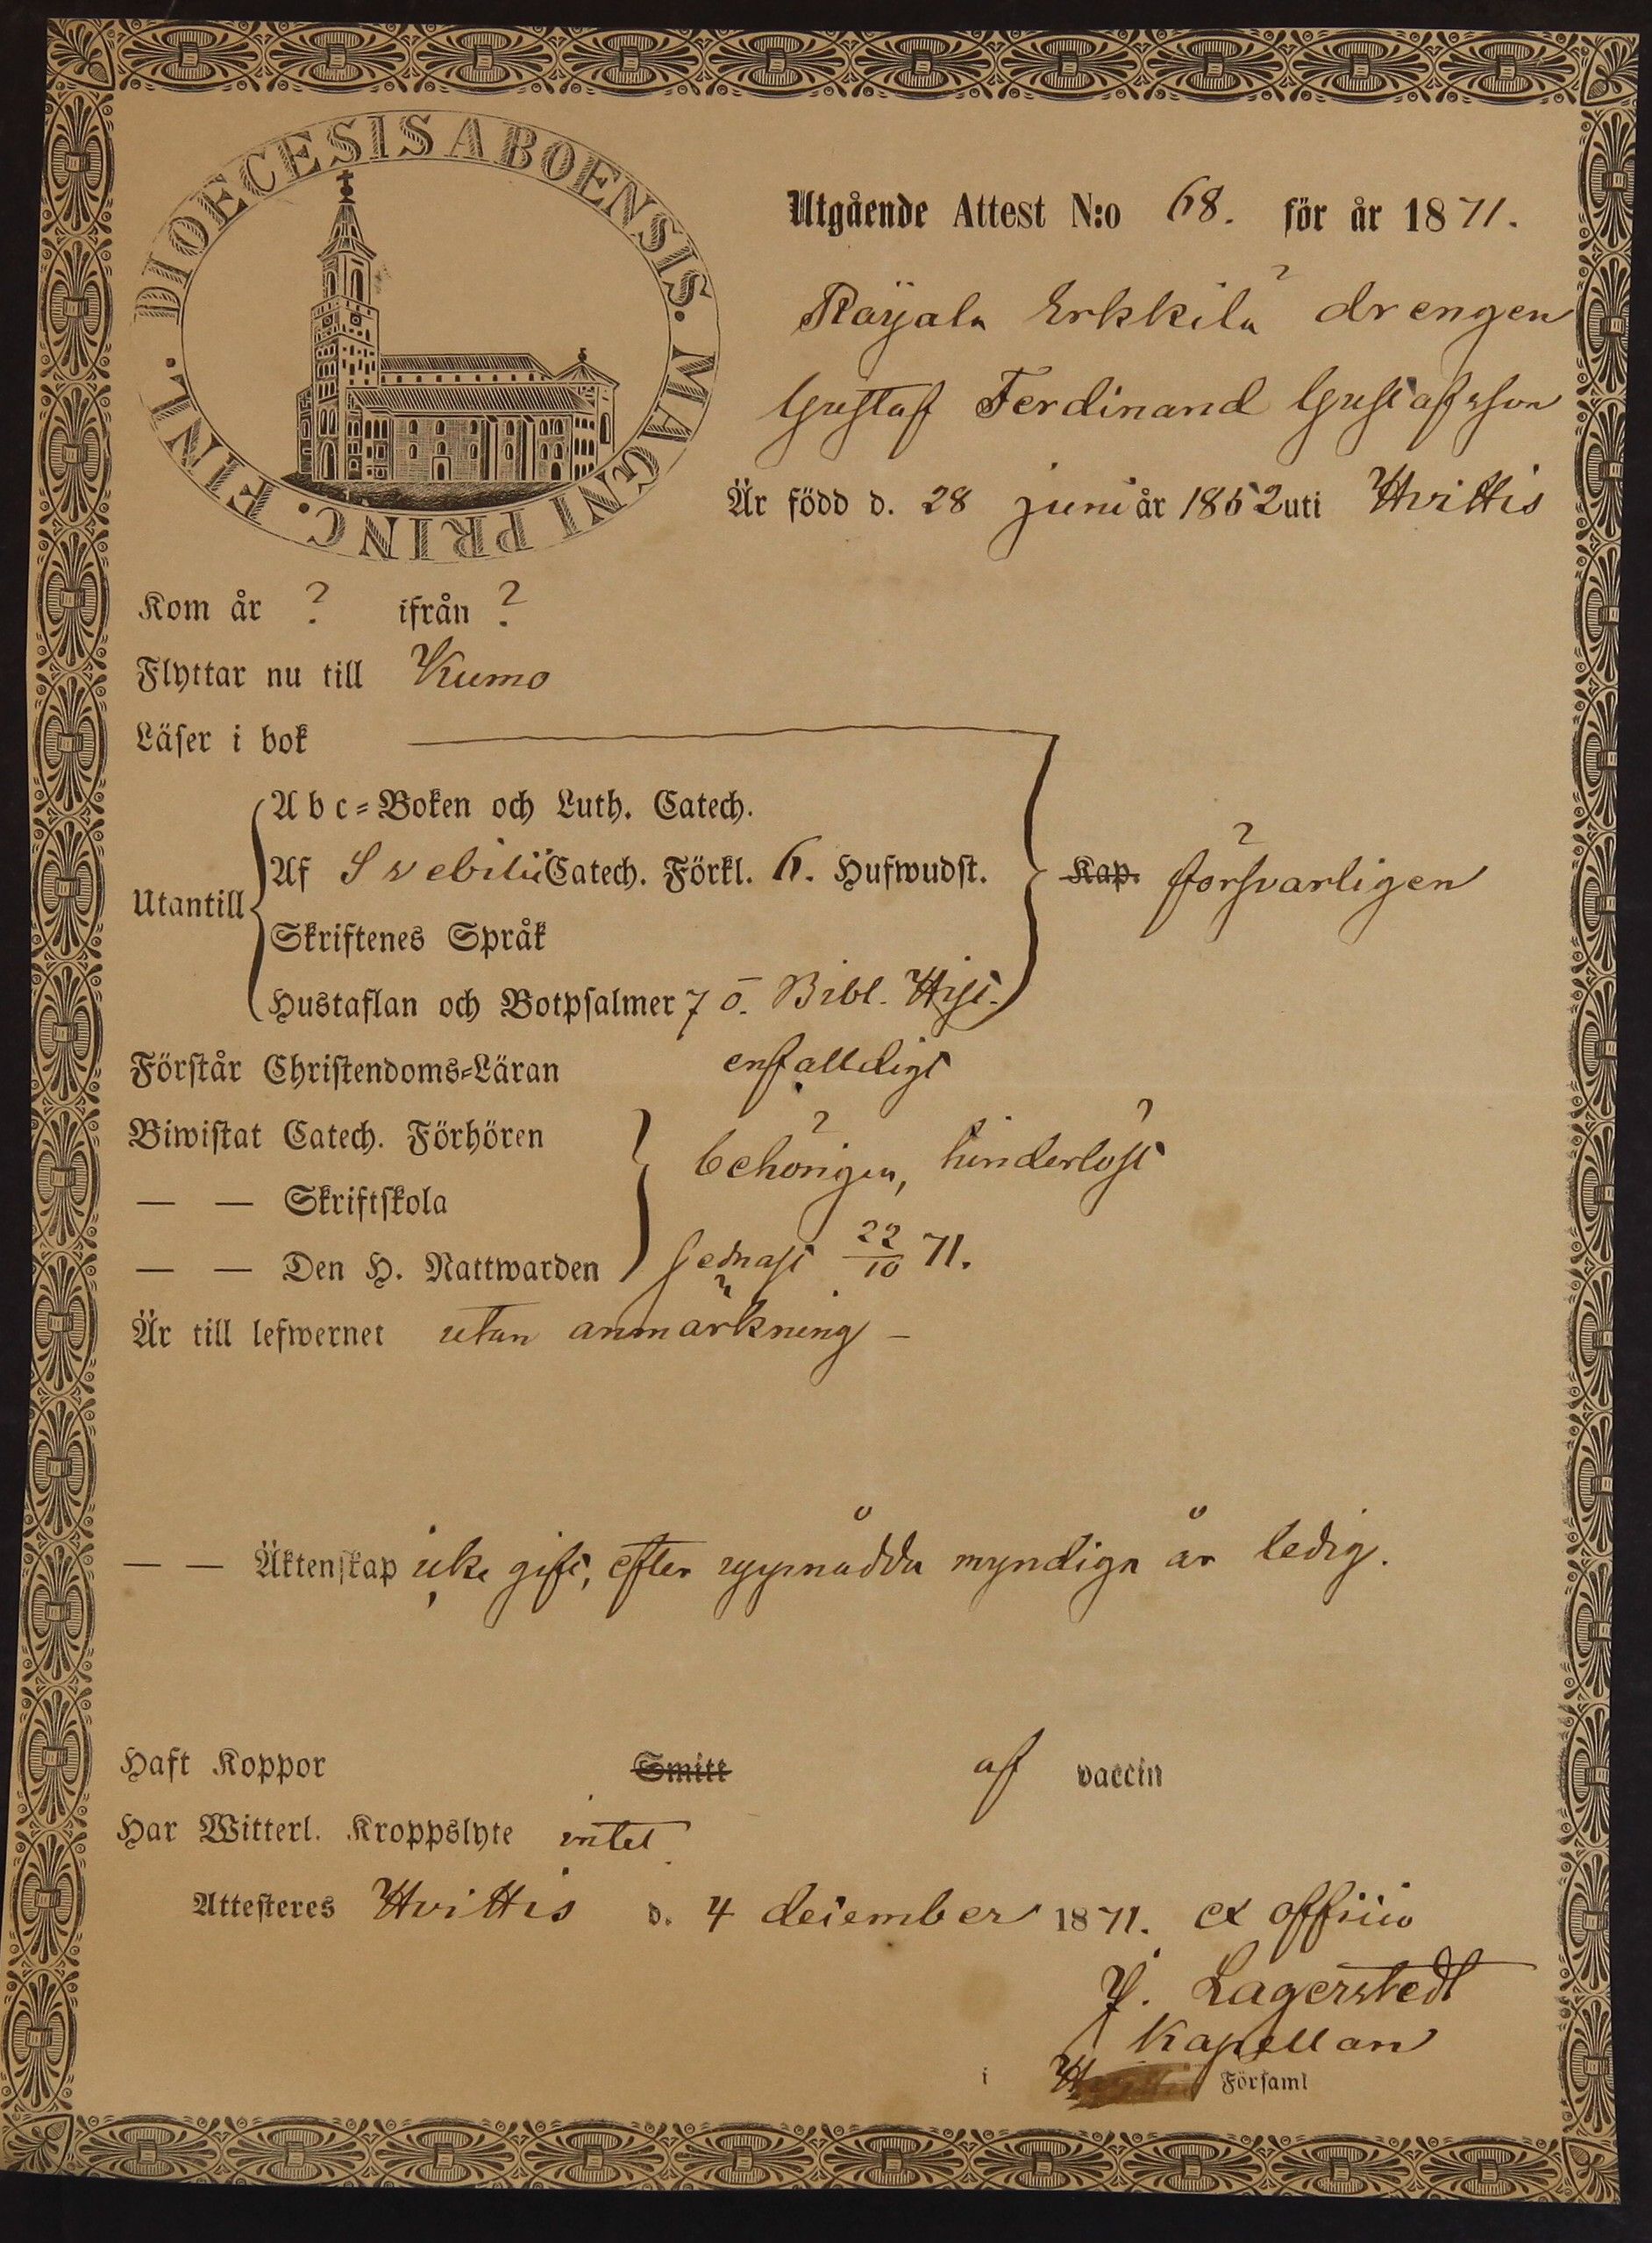 DIOECESIS ABOENSIS. MAGNI PRINC. FINL.
Utgående Attest N:o 68. för år 1871.
Raijala Erkkilä drengen
Gustaf Ferdinand Gustafsson
Är född d. 28 juni år 1852 uti Hvittis
Kom år ? ifrån ?
Flyttar nu till Kumo
Läser i bok
Utantill
Abc-Boken och Luth. Catech.
Af Svebilii Catech. Förkl. 6. Hufwudst.
Kap. försvarligen
Skriftenes Språk
Hustaflan och Botpsalmer 7 o. Bibl. Hist.
Förstår Christendoms-Läran enfalldigt
Biwistat Catech. Förhören
behörigen, hinderlöst
— — Skriftskola
— — Den H. Nattwarden senast 22/10 71.
Är till lefwernet utan anmärkning –
— — Äktenskap icke gift, efter uppnådda myndiga år ledig.
Haft Koppor Smitt af vaccin
Har Witterl. Kroppslyte intet
Attesteres Hvittis d. 4 december 1871. ex officio
Lagerstedt
Kapellan
i Församl